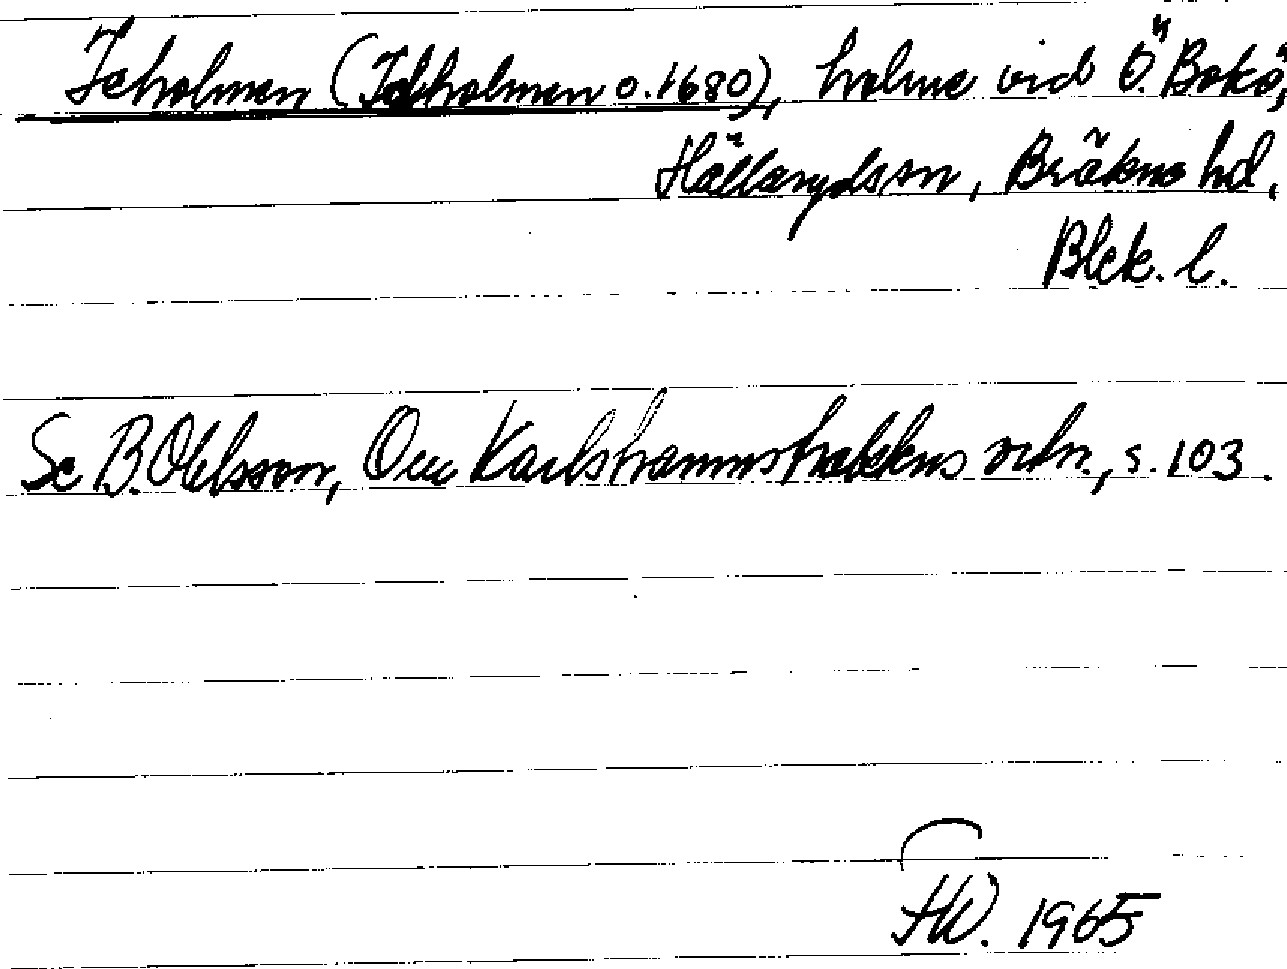 Icholmen (Idkholmen o. 1680), holme vid Ö. Bokö,
Hällarydssn, Bräkne hd,
Blek. l.
Se B. Olsson, Om Karlshamnstraktens ortn., s. 103.
HW. 1965